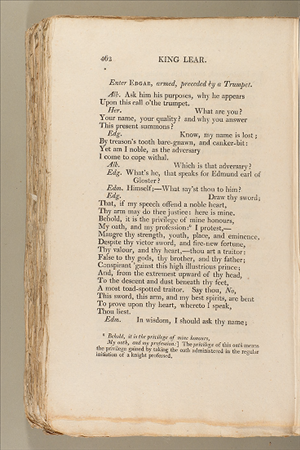 462 KING LEAR.
Enter EDGAR, armed, preceded by a Trumpet.
Alb. Ask him his purposes, why he appears
Upon this call o'the trumpet.
Her. What are you?
Your name, your quality? and why you answer
This present summons?
Edg. Know, my name is lost;
By treason's tooth bare-gnawn, and canker-bit:
Yet am I noble, as the adversary
I come to cope withal.
Alb. Which is that adversary?
Edg. What's he, that speaks for Edmund earl of
Gloster?
Edm. Himself;—What say'st thou to him?
Edg. Draw thy sword;
That, if my speech offend a noble heart,
Thy arm may do thee justice: here is mine.
Behold, it is the privilege of mine honours,
My oath, and my profession:* I protest,—
Maugre thy strength, youth, place, and eminence,
Despite thy victor sword, and fire-new fortune,
Thy valour, and thy heart,—thou art a traitor:
False to thy gods, thy brother, and thy father;
Conspirant 'gainst this high illustrious prince;
And, from the extremest upward of thy head,
To the descent and dust beneath thy feet,
A most toad-spotted traitor. Say thou, No,
This sword, this arm, and my best spirits, are bent
To prove upon thy heart, whereto I speak,
Thou liest.
Edm. In wisdom, I should ask thy name;
* Behold, it is the privilege of mine honours,
My oath, and my profession:] The privilege of this oath means
the privilege gained by taking the oath administered in the regular
initiation of a knight professed.